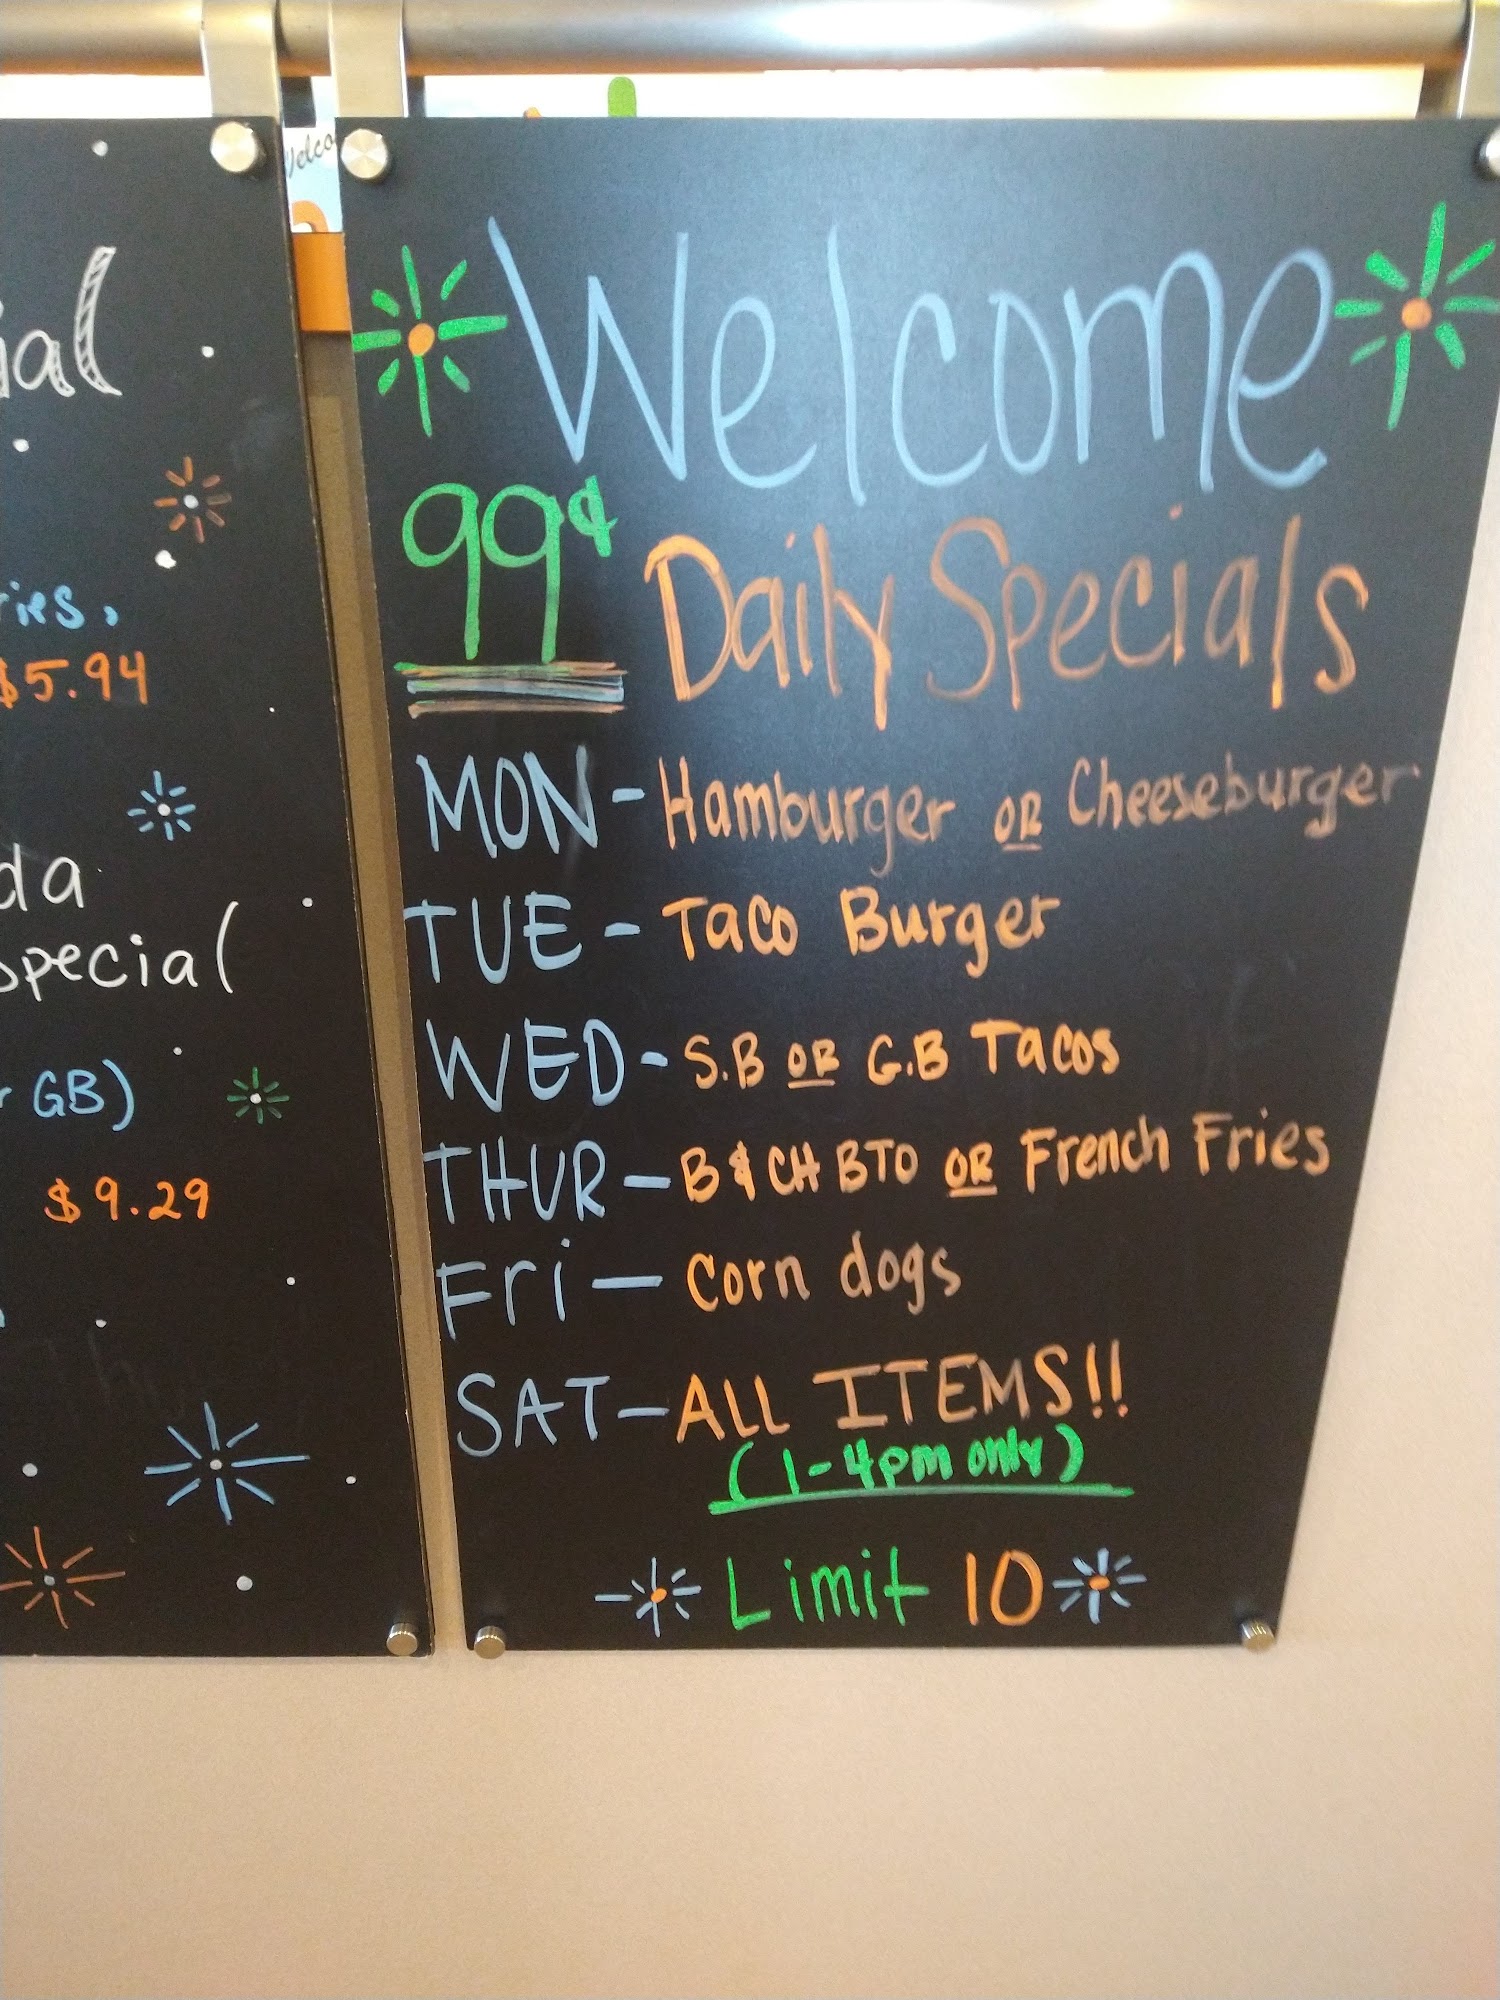 Welco
ial
ries,
$5.94
da
special
GB)
$9.29
Welcome
99¢ Daily Specials
MON - Hamburger OR Cheeseburger
TUE - Taco Burger
WED - S.B OR G.B Tacos
THUR - B & CH BTO OR French Fries
Fri - Corn dogs
SAT - ALL ITEMS!!
(1-4pm only)
Limit 10